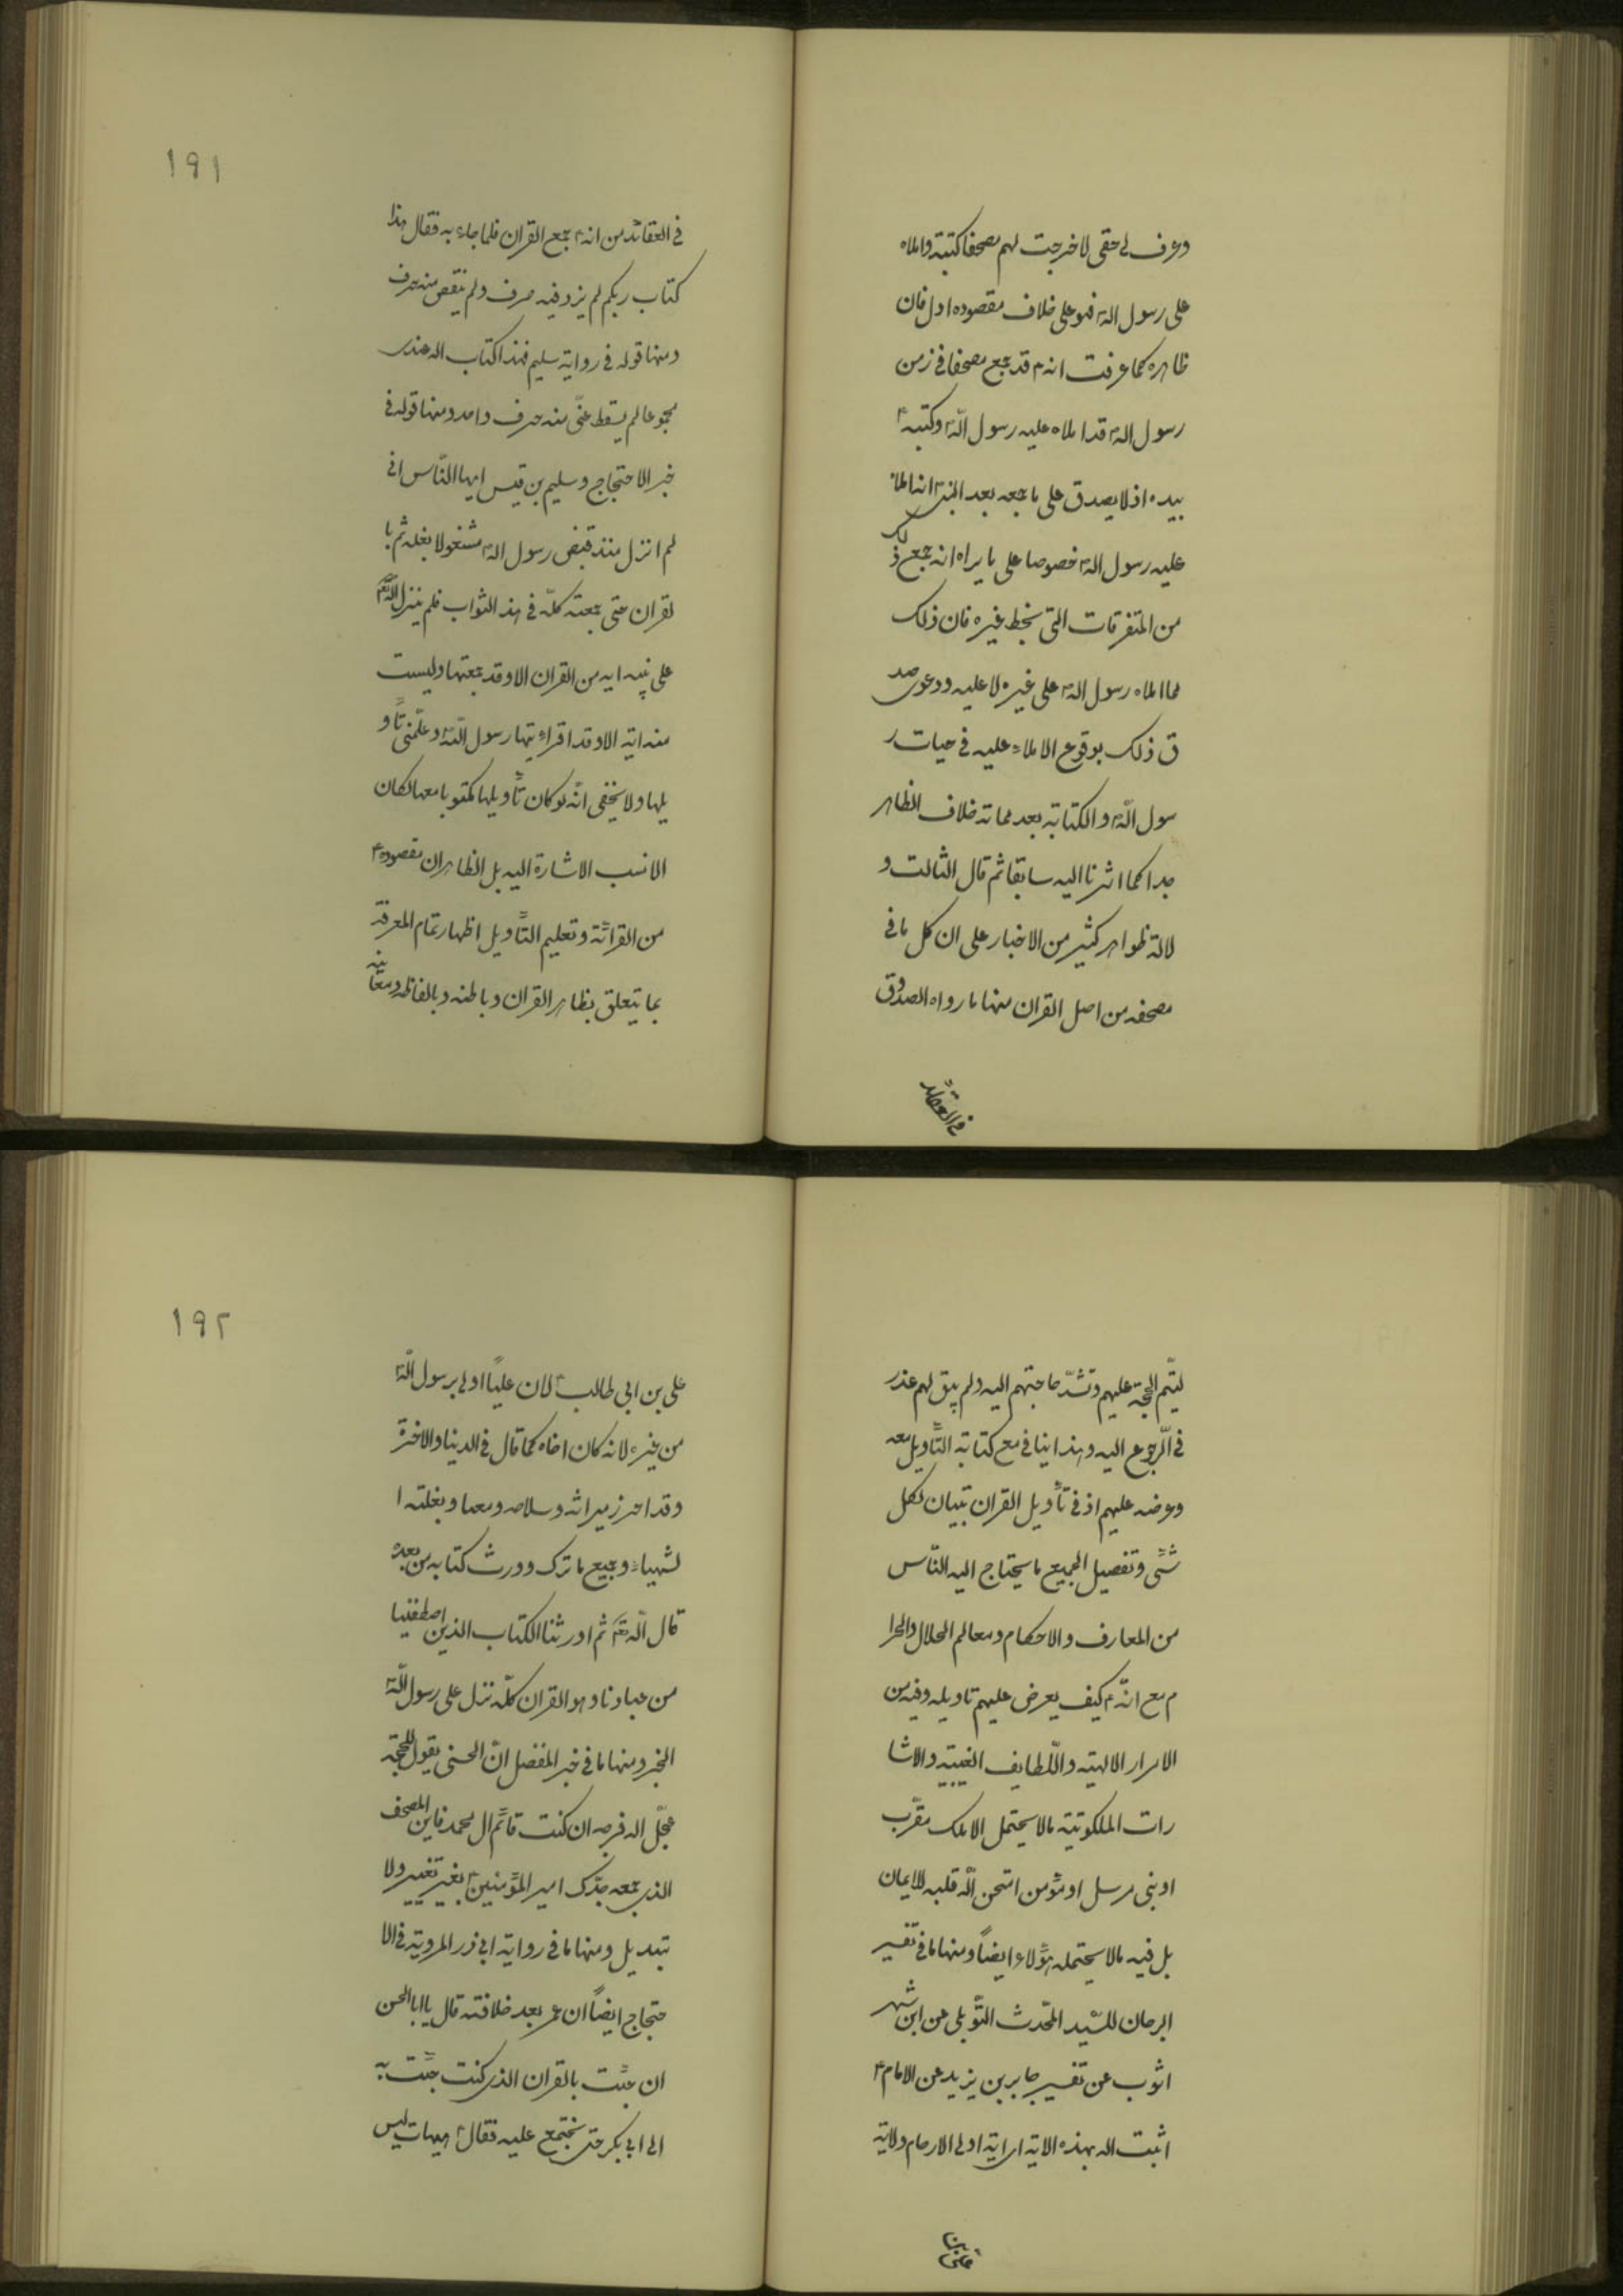 وعرف لی حقی لاخرجت لهم مصحفا کتبته واملاه
علی رسول الله فهو علی خلاف مقصوده ادل فان
ظاهره کما عرفت انه قد جمع مصحفا فی زمن
رسول الله قد املاه علیه رسول الله وکتبه
بیده اذ لا یصدق علی ما جمعه بعد النبی انه املاه
علیه رسول الله خصوصا علی ما یراه انه جمع ذلک
من المتفرقات التی بخط غیره فان ذلک
مما املاه رسول الله علی غیره لا علیه ودعوی صد
ق ذلک بوقوع الاملاء علیه فی حیات ر
سول الله والکتابة بعد مماته خلاف الظاهر
جدا کما اشرنا الیه سابقا ثم قال الثالث و
لالة ظواهر کثیر من الاخبار علی ان کل ما فی
مصحفه من اصل القران منها ما رواه الصدوق
فی العقائد
١٩١
فی العقائد من انه جمع القران فلما جاء به فقال هذا
کتاب ربکم لم یزد فیه حرف ولم ینقص منه حرف
ومنها قوله فی روایة سلیم فهذا کتاب الله عندی
مجموعا لم یسقط عنّی منه حرف واحد ومنها قوله فی
خبر الاحتجاج وسلیم بن قیس ایها النّاس انی
لم ازل منذ قبض رسول الله مشغولا بغسله ثم با
لقران حتی جمعته کلّه فی هذا الثواب فلم ینزل الله
علی نبیه ایه من القران الا وقد جمعتها ولیست
منه ایة الا وقد اقراءنیها رسول الله وعلّمنی تأو
یلها ولا یخفی انّه لو کان تأویلها مکتوبا معها لکان
الانسب الاشارة الیه بل الظاهر ان مقصوده
من القرائة وتعلیم التأویل اظهار تمام المعرفة
بما یتعلق بظاهر القران وباطنه وبالفاظه ومعانیه
لیتّم الحجة علیهم وتشدّ حاجتهم الیه ولم یبق لهم عذر
فی الرّجوع الیه وهذا ینافی مع کتابة التأویل معه
وعرضه علیهم اذ فی تأویل القران تبیان لکل
شئ وتفصیل الجمیع ما یحتاج الیه النّاس
من المعارف والاحکام ومعالم الحلال والحرا
م مع انّه کیف یعرض علیهم تاویله وفیه من
الاسرار الالهیة واللّطایف الغیبیة والاشا
رات الملکوتیة مالا یحتمل الا ملک مقرّب
او نبی مرسل او مؤمن امتحن الله قلبه للایمان
بل فیه مالا یحتمله هؤلاء ایضاً ومنها ما فی تفسیر
البرهان للسّید المحّدث التّوبلی عن ابن شهر
اشوب عن تفسیر جابر بن یزید عن الامام
اثبت الله بهذه الایة ای ایة اولی الارحام ولایة
علی بن
١٩٢
علی بن ابی طالب لان علیاً اولی برسول الله
من غیره لانه کان اخاه کما قال فی الدنیا والاخرة
وقد احرز میراثه وسلاحه ومتاعه وبغلته ا
لشهباء وجمیع ما ترک وورث کتابه من بعده
قال الله تع ثم اورثنا الکتاب الذین اصطفینا
من عبادنا وهو القران کلّه نزل علی رسول الله
الخبر ومنها ما فی خبر المفضل انّ الحسنی یقول للحجة
عجّل الله فرجه ان کنت قائم ال محمد فاین المصحف
الذی جمعه جدّک امیر المؤمنین بغیر تغییر ولا
تبدیل ومنها ما فی روایة ابی ذر المرویة فی الا
حتجاج ایضاً ان عمر بعد خلافته قال یا ابا الحسن
ان جئت بالقران الذی کنت جئت به
الی ابی بکر حتی نجتمع علیه فقال هیهات لیس